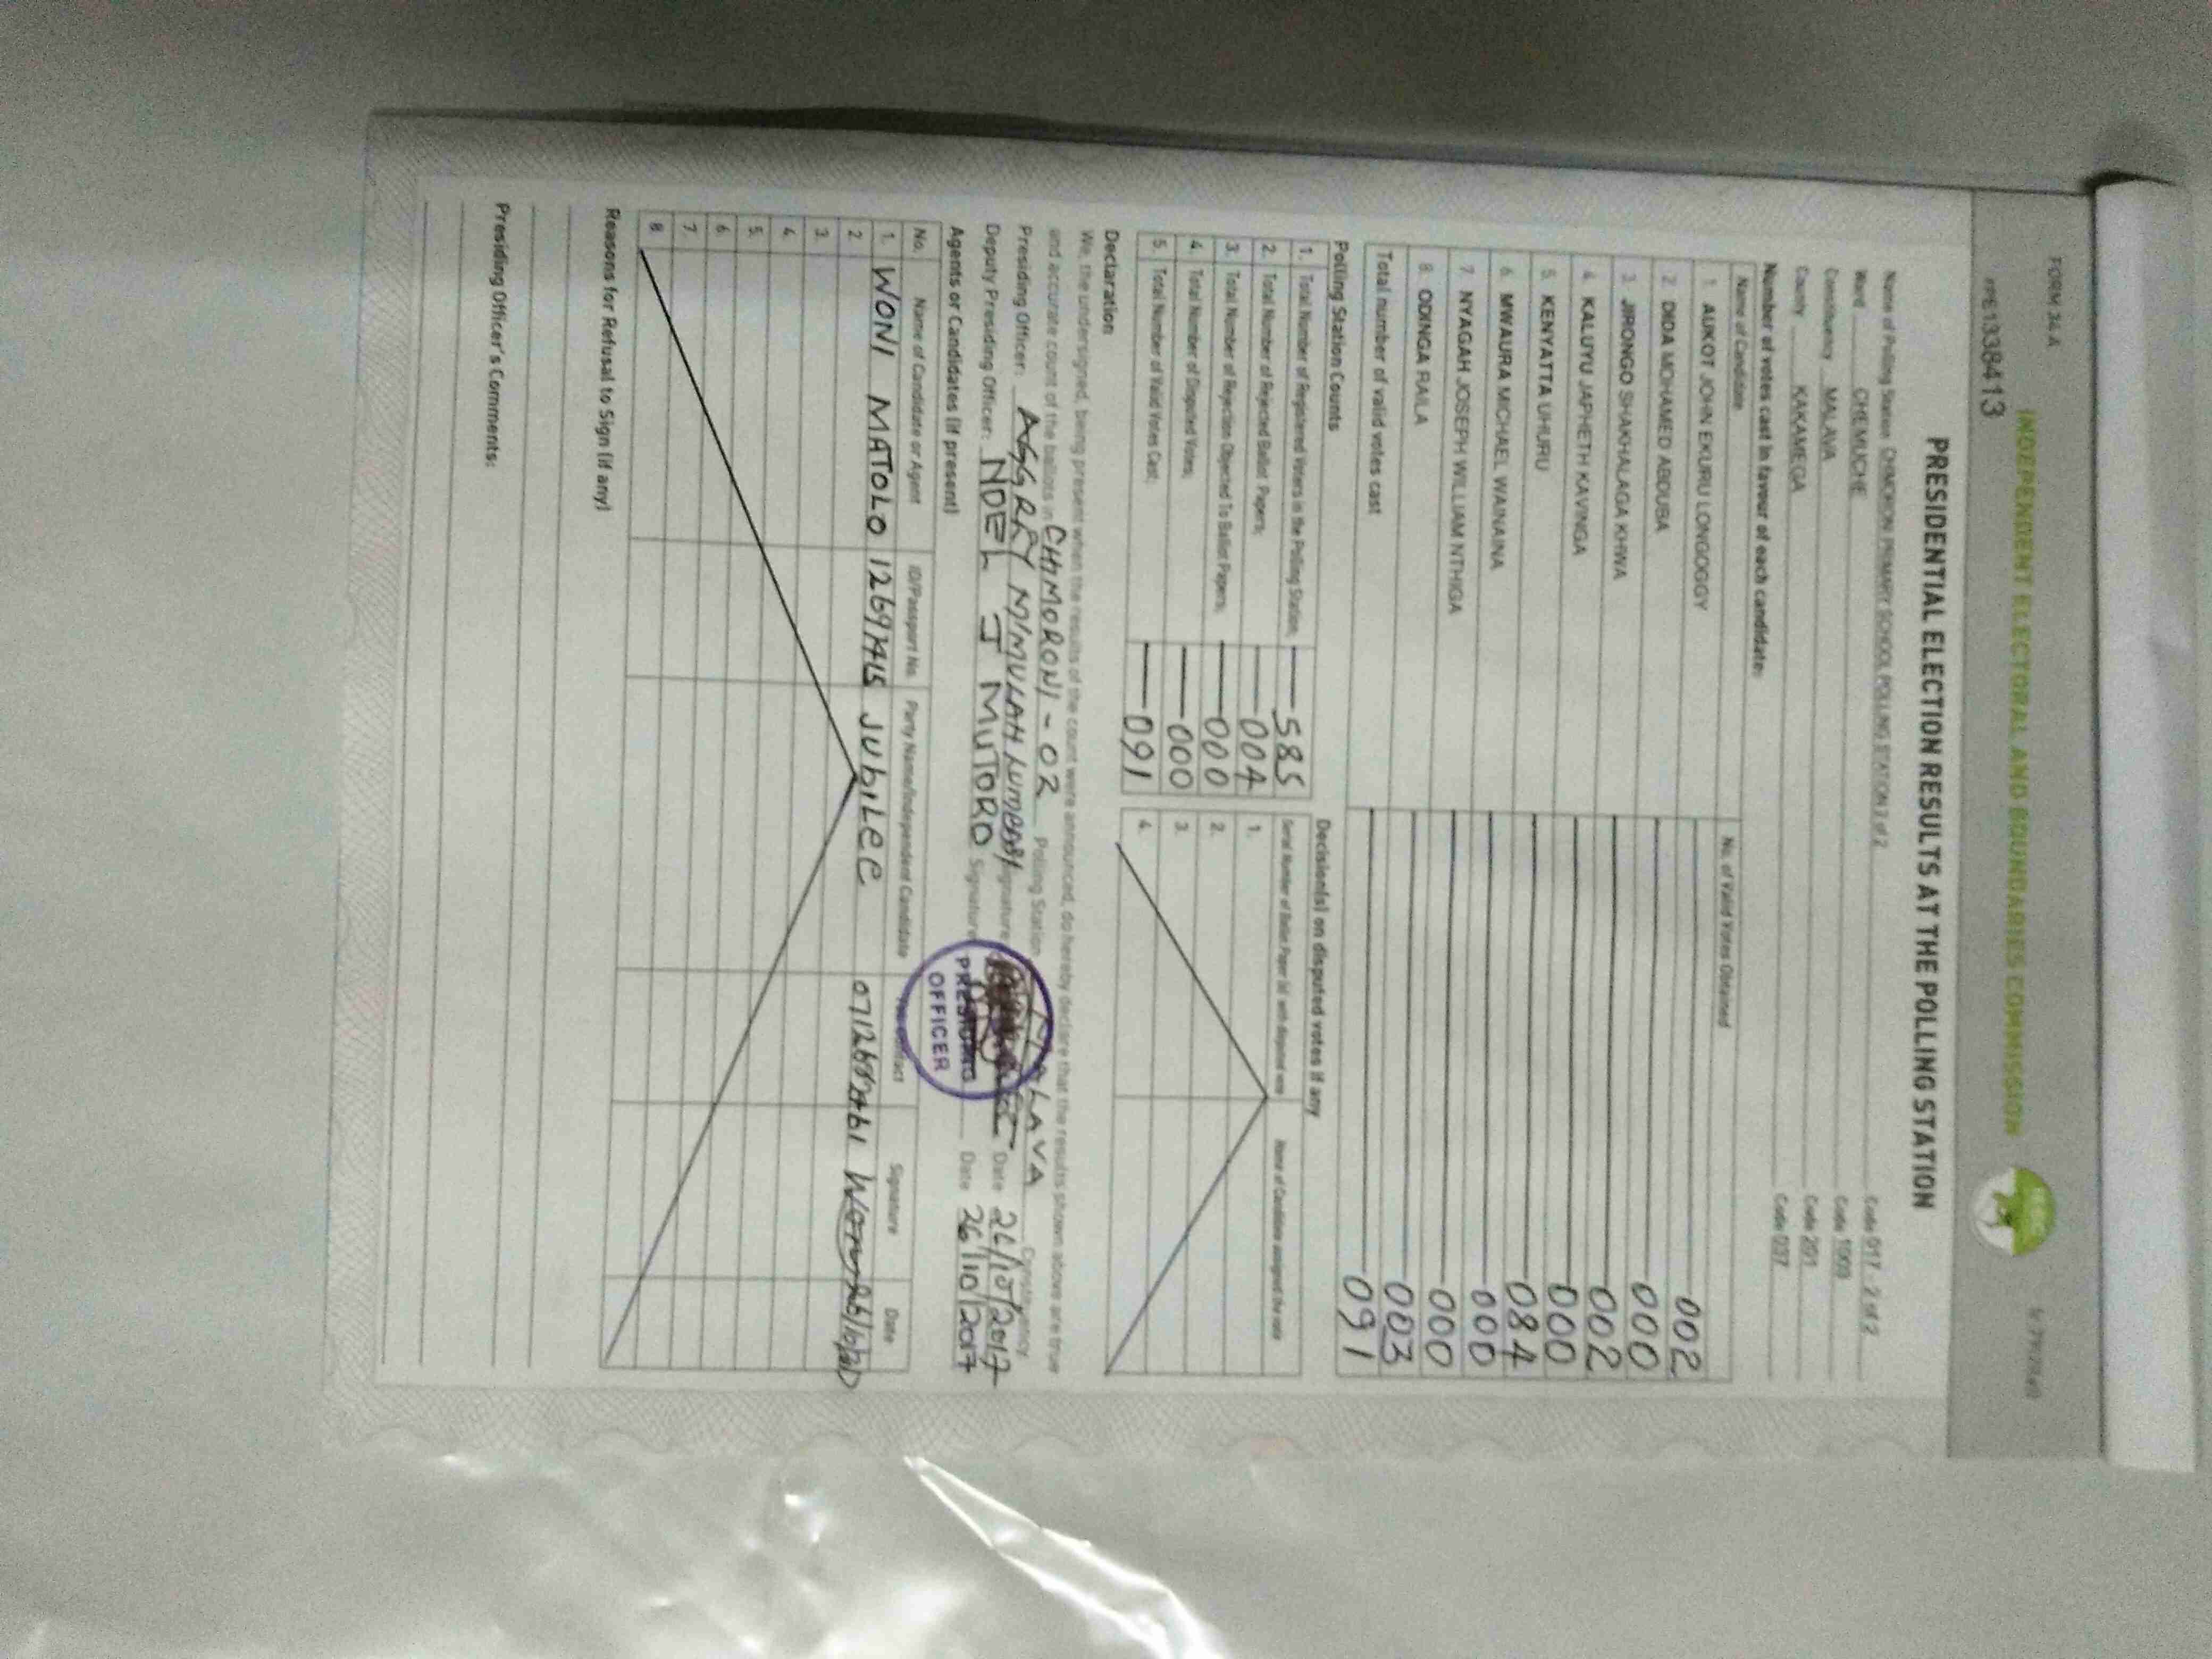 FORM 34A
INDEPENDENT ELECTORAL AND BOUNDARIES COMMISSION
IEBC
PRESIDENTIAL ELECTION RESULTS AT THE POLLING STATION
Name of Polling Station CHIMORONI PRIMARY SCHOOL POLLING STATION 2 of 2 Code 017 - 2 of 2
Ward CHEMUCHE Code 1003
Constituency MALAVA Code 201
County KAKAMEGA Code 037
Number of votes cast in favour of each candidate:
Name of Candidate No. of Valid Votes Obtained
1 AUKOT JOHN EKURU LONGOGGY 002
2 DIDA MOHAMED ABDUBA 000
3 JIRONGO SHAKHALAGA KHWA 002
4 KALUYU JAPHETH KAVINGA 000
5 KENYATTA UHURU 084
6 MWAURA MICHAEL WAINAINA 000
7 NYAGAH JOSEPH WILLIAM NTHIGA 000
8 ODINGA RAILA 003
Total number of valid votes cast 091
Polling Station Counts
1. Total Number of Registered Voters in the Polling Station; 585
2. Total Number of Rejected Ballot Papers; 004
3. Total Number of Rejection Objected To Ballot Papers; 000
4. Total Number of Disputed Votes; 000
5. Total Number of Valid Votes Cast; 091
Decision(s) on disputed votes if any
Serial Number of Ballot Paper (s) with disputed vote Name of Candidate assigned the vote
1.
2.
3.
4.
Declaration
We, the undersigned, being present when the results of the count were announced, do hereby declare that the results shown above are true
and accurate count of the ballots in CHIMORONI - 02 Polling Station MALAVA Constituency
Presiding Officer: AGGREY Signature Date 26/10/2017
Deputy Presiding Officer: NOEL J MUTORO Signature Date 26/10/2017
PRESIDING
OFFICER
Agents or Candidates (if present)
No. Name of Candidate or Agent ID/Passport No. Party Name/Independent Candidate Tel. Contact Signature Date
1. WONI MATOLO JUBILEE
2.
3.
4.
5.
6.
7.
8.
Reasons for Refusal to Sign (if any)
Presiding Officer's Comments: